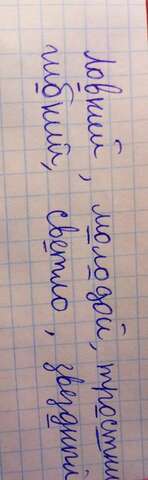 ловкий, молодой, тростни
гибкий, светло, звездный